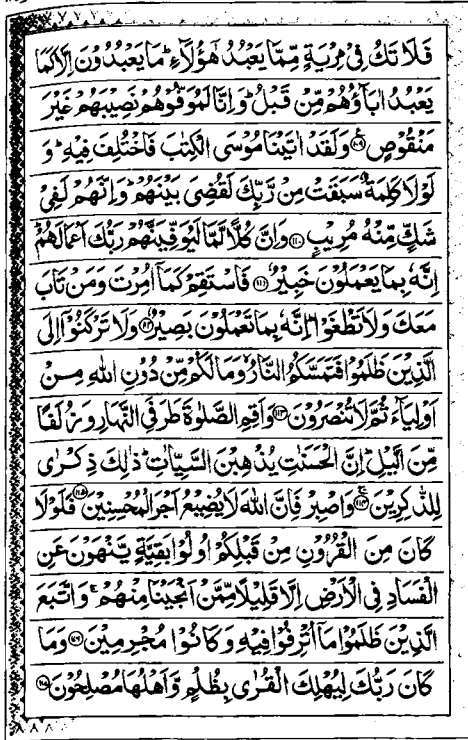 فَلَا تَكُ فِیْ مِرْیَةٍ مِّمَّا یَعْبُدُ هٰۤؤُلَآءِ ؕ مَا یَعْبُدُوْنَ اِلَّا كَمَا
یَعْبُدُ اٰبَآؤُهُمْ مِّنْ قَبْلُ ؕ وَ اِنَّا لَمُوَفُّوْهُمْ نَصِیْبَهُمْ غَیْرَ
مَنْقُوْصٍ ﴿۱۰۹﴾ وَ لَقَدْ اٰتَیْنَا مُوْسَی الْكِتٰبَ فَاخْتُلِفَ فِیْهِ ؕ وَ
لَوْ لَا كَلِمَةٌ سَبَقَتْ مِنْ رَّبِّكَ لَقُضِیَ بَیْنَهُمْ ؕ وَ اِنَّهُمْ لَفِیْ
شَكٍّ مِّنْهُ مُرِیْبٍ ﴿۱۱۰﴾ وَ اِنَّ كُلًّا لَّمَّا لَیُوَفِّیَنَّهُمْ رَبُّكَ اَعْمَالَهُمْ ؕ
اِنَّهٗ بِمَا یَعْمَلُوْنَ خَبِیْرٌ ﴿۱۱۱﴾ فَاسْتَقِمْ كَمَاۤ اُمِرْتَ وَ مَنْ تَابَ
مَعَكَ وَ لَا تَطْغَوْا ؕ اِنَّهٗ بِمَا تَعْمَلُوْنَ بَصِیْرٌ ﴿۱۱۲﴾ وَ لَا تَرْكَنُوْۤا اِلَی
الَّذِیْنَ ظَلَمُوْا فَتَمَسَّكُمُ النَّارُ ۙ وَ مَا لَكُمْ مِّنْ دُوْنِ اللّٰهِ مِنْ
اَوْلِیَآءَ ثُمَّ لَا تُنْصَرُوْنَ ﴿۱۱۳﴾ وَ اَقِمِ الصَّلٰوةَ طَرَفَیِ النَّهَارِ وَ زُلَفًا
مِّنَ الَّیْلِ ؕ اِنَّ الْحَسَنٰتِ یُذْهِبْنَ السَّیِّاٰتِ ؕ ذٰلِكَ ذِكْرٰی
لِلذّٰكِرِیْنَ ﴿۱۱۴﴾ وَ اصْبِرْ فَاِنَّ اللّٰهَ لَا یُضِیْعُ اَجْرَ الْمُحْسِنِیْنَ ﴿۱۱۵﴾ فَلَوْ لَا
كَانَ مِنَ الْقُرُوْنِ مِنْ قَبْلِكُمْ اُولُوْا بَقِیَّةٍ یَّنْهَوْنَ عَنِ
الْفَسَادِ فِی الْاَرْضِ اِلَّا قَلِیْلًا مِّمَّنْ اَنْجَیْنَا مِنْهُمْ ۚ وَ اتَّبَعَ
الَّذِیْنَ ظَلَمُوْا مَاۤ اُتْرِفُوْا فِیْهِ وَ كَانُوْا مُجْرِمِیْنَ ﴿۱۱۶﴾ وَ مَا
كَانَ رَبُّكَ لِیُهْلِكَ الْقُرٰی بِظُلْمٍ وَّ اَهْلُهَا مُصْلِحُوْنَ ﴿۱۱۷﴾